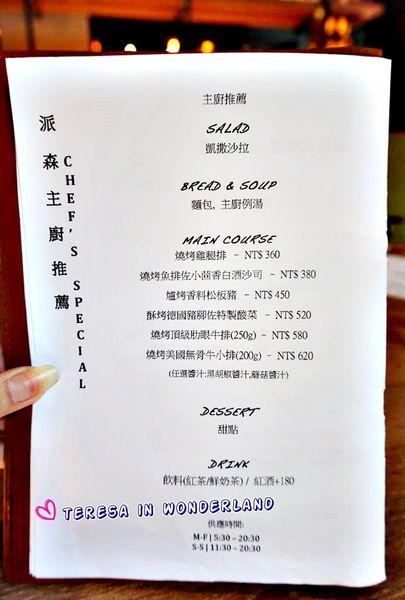 派森主廚推薦
CHEF'S SPECIAL
主廚推薦
SALAD
凱撒沙拉
BREAD & SOUP
麵包, 主廚例湯
MAIN COURSE
燒烤雞腿排 – NT$ 360
燒烤魚排佐小茴香白酒沙司 – NT$ 380
爐烤香料松板豬 – NT$ 450
酥烤德國豬腳佐特製酸菜 – NT$ 520
燒烤頂級肋眼牛排(250g) – NT$ 580
燒烤美國無骨牛小排(200g) – NT$ 620
(任選醬汁:黑胡椒醬汁,蘑菇醬汁)
DESSERT
甜點
DRINK
飲料(紅茶/鮮奶茶) / 紅酒+180
TERESA IN WONDERLAND
供應時間:
M-F | 5:30 – 20:30
S-S | 11:30 – 20:30